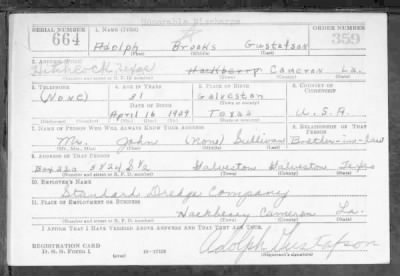 Honorable Discharge
SERIAL NUMBER 1. NAME (Print) ORDER NUMBER
664 Adolph Brooks Gustafson 359
(First) (Middle) (Last)
2. ADDRESS (Print)
Hitchcock, Texas Hackberry Cameron La.
(Number and street or R. F. D. number) (Town) (County) (State)
3. TELEPHONE 4. AGE IN YEARS 5. PLACE OF BIRTH 6. COUNTRY OF CITIZENSHIP
(None) 31 Galveston
DATE OF BIRTH (Town or county)
April 16 1909 Texas U.S.A.
(Exchange) (Number) (Mo.) (Day) (Yr.) (State or country)
7. NAME OF PERSON WHO WILL ALWAYS KNOW YOUR ADDRESS 8. RELATIONSHIP OF THAT PERSON
Mr. John (None) Sullivan Brother-in-law
(Mr., Mrs., Miss) (First) (Middle) (Last)
9. ADDRESS OF THAT PERSON
5424 S½ Galveston Galveston Texas
(Number and street or R. F. D. number) (Town) (County) (State)
10. EMPLOYER'S NAME
Standard Dredge Company
11. PLACE OF EMPLOYMENT OR BUSINESS
Hackberry Cameron La.
(Number and street or R. F. D. number) (Town) (County) (State)
I AFFIRM THAT I HAVE VERIFIED ABOVE ANSWERS AND THAT THEY ARE TRUE.
REGISTRATION CARD Adolph Gustafson
D. S. S. FORM 1 (over) (Registrant's signature)